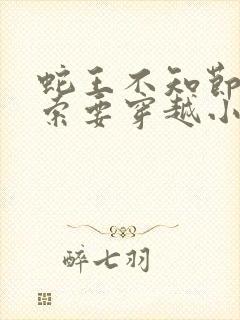 蛇王不知节
索要穿越小
醉七羽